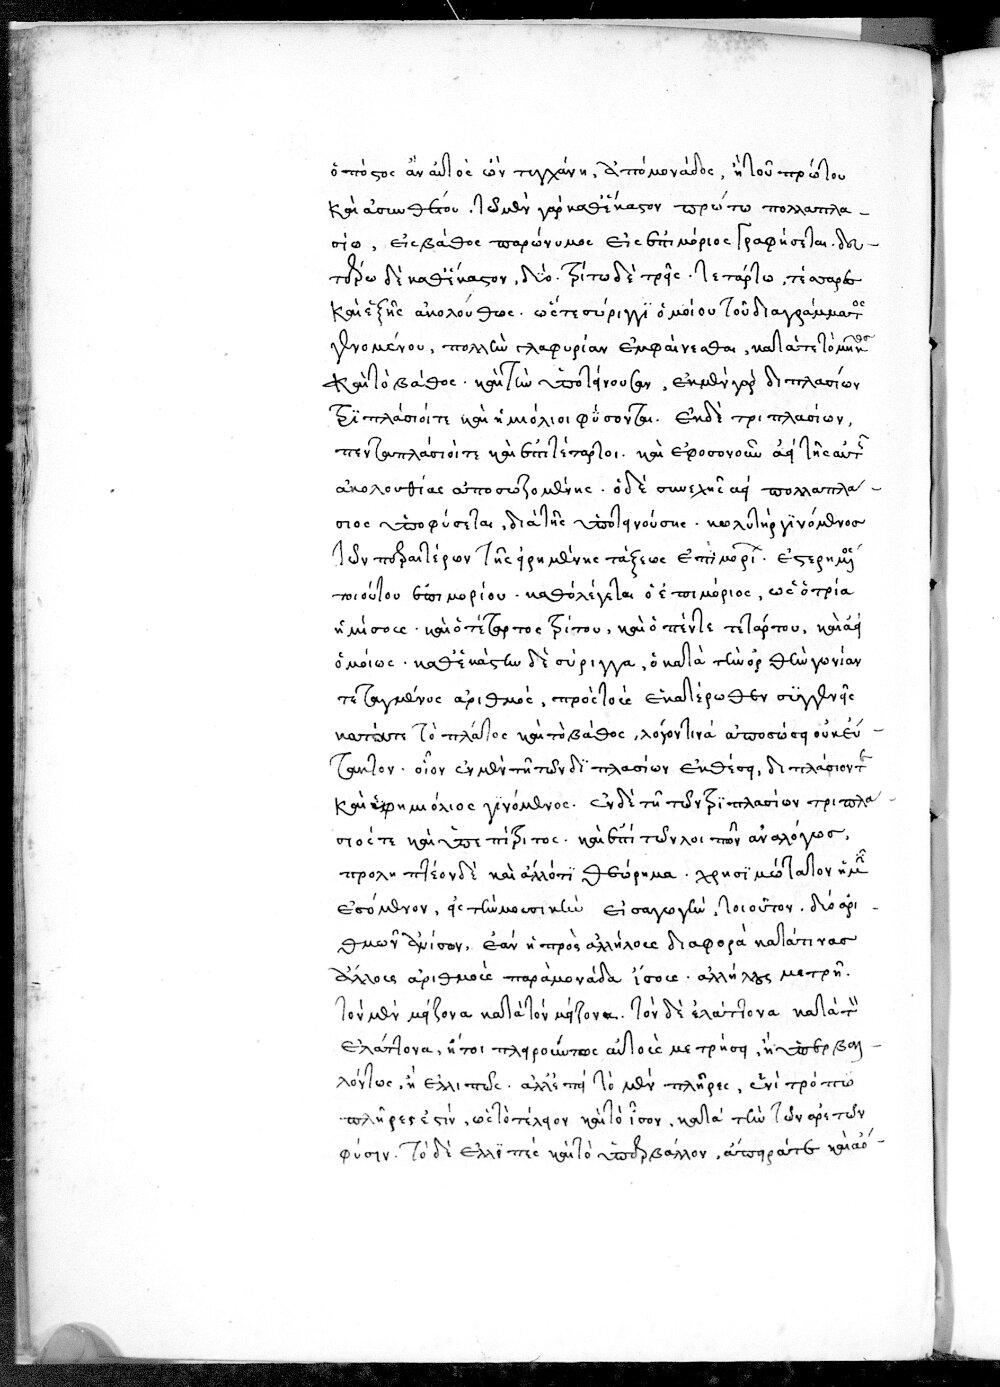 ὁπόστος ἂν αὐτὸς ὢν τυγχάνῃ, ἀπὸ μονάδος, ἢ τοῦ πρώτου
καὶ ἀσυνθέτου. τῷ μὲν γὰρ καθ' ἕκαστον πρώτῳ πολλαπλα-
σίῳ, εἰς βάθος παρώνυμος εἷς ἐπιμόριος γραφήσεται. δευ-
τέρῳ δὲ καθ' ἕκαστον, δύο. τρίτῳ δὲ τρεῖς. τετάρτῳ, τέσσαρες
καὶ ἑξῆς ἀκολούθως. ὥστε σύριγγι ὁμοίου τοῦ διαγράμματος
γενομένου, πολλὴν γλαφυρίαν ἐμφαίνεσθαι, κατά τε τὸ μῆκος
καὶ τὸ βάθος. καὶ τὴν ὑποτείνουσαν, ἐκ μὲν γὰρ διπλασίων
τριπλάσιοί τε καὶ ἡμιόλιοι φύσονται. ἐκ δὲ τριπλασίων,
πενταπλάσιοί τε καὶ ἐπιτέταρτοι. καὶ ἐφ' ὅσον οὖν ἀεὶ τῆς αὐτῆς
ἀκολουθίας ἀποσωζομένης. ὁ δὲ συνεχὴς ἀεὶ πολλαπλά-
σιος ὑποφύσεται, διὰ τῆς ὑποτεινούσης. κωλυτὴρ γινόμενος
τῶν ποῤῥωτέρων τῆς εἰρημένης τάξεως ἐπιμορί
ποιούτου ἐπιμορίου. καθὸ λέγεται ὁ ἐπιμόριος, ὡς ὁ τρία
ἥμισους. καὶ ὁ τέταρτος τρίτου, καὶ ὁ πέντε τετάρτου, καὶ ἀεὶ
ὁμοίως. καθ' ἑκάστην δὲ σύριγγα, ὁ κατὰ τὴν ὀρθὴν γωνίαν
τεταγμένος ἀριθμὸς, πρὸς τοὺς ἑκατέρωθεν συγγενεῖς
κατά τε τὸ πλάτος καὶ τὸ βάθος, λόγον τινὰ ἀποσώσει οὐκ εὔ-
τακτον. οἷον ἐν μὲν τῇ τῶν διπλασίων ἐκθέσει, διπλάσιον τε
καὶ ἡμιόλιος γινόμενος. ἐν δὲ τῇ τῶν τριπλασίων τριπλά-
σιός τε καὶ ἐπίτριτος. καὶ ἐπὶ τῶν λοιπῶν ἀναλόγως.
προληπτέον δὲ καὶ ἄλλό τι θεώρημα. χρησιμώτατον ἡμῖν
ἐσόμενον, εἰς τὴν μουσικὴν εἰσαγωγὴν, τοιοῦτον. δύο ἀρι-
θμῶν ἀνίσων, ἐὰν ἡ πρὸς ἀλλήλους διαφορὰ κατά τινας
ἄλλους ἀριθμοὺς παρὰ μονάδα ἴσους. ἀλλήλους μετρῇ.
τὸν μὲν μείζονα κατὰ τὸν μείζονα. τὸν δὲ ἐλάττονα κατὰ τὸν
ἐλάττονα, ἤτοι πληρούντως αὐτοὺς μετρήσει, ἢ ὑπερβαλ-
λόντως, ἢ ἐλλιπῶς. ἀλλ' ἐπεὶ τὸ μὲν πλῆρες, ἑνὶ τρόπῳ
πλῆρες ἐστίν, ὡς τὸ τέλειον καὶ τὸ ἴσον, κατὰ τὴν τῶν ἀρετῶν
φύσιν. τὸ δὲ ἐλλιπὲς καὶ τὸ ὑπερβάλλον, ἀπέρατός καὶ ἀό-